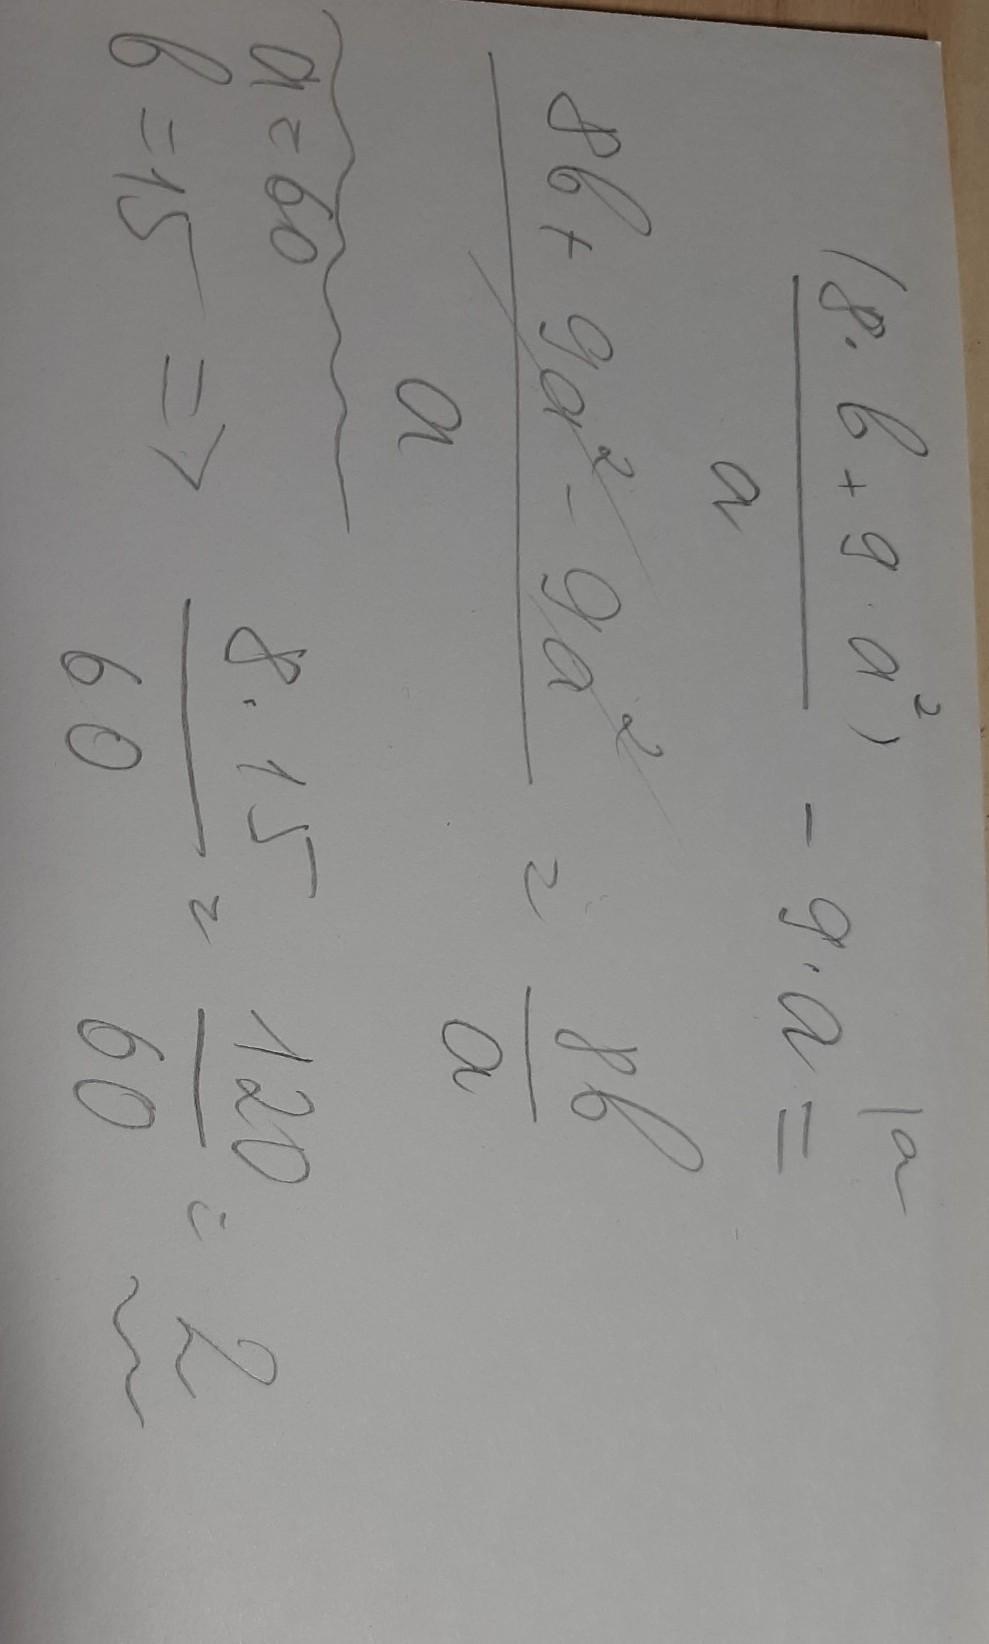 (8·b+9·a²)/a - 9·a = |a
(8b+9a²-9a²)/a = 8b/a
a=60
b=15 => (8·15)/60 = 120/60 = 2